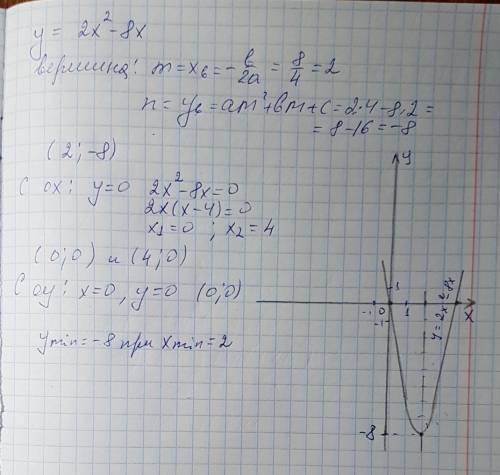 y = 2x² - 8x
вершина: m = xв = -b/2a = 8/4 = 2
n = yв = am² + bm + c = 2·4 - 8·2 =
= 8 - 16 = -8
(2; -8)
С ox: y=0 2x² - 8x = 0
2x(x-4) = 0
x₁ = 0 ; x₂ = 4
(0;0) и (4;0)
С oy: x=0, y=0 (0;0)
ymin = -8 при xmin = 2
y
1
0 1
x
y = 2x² - 8x
-8